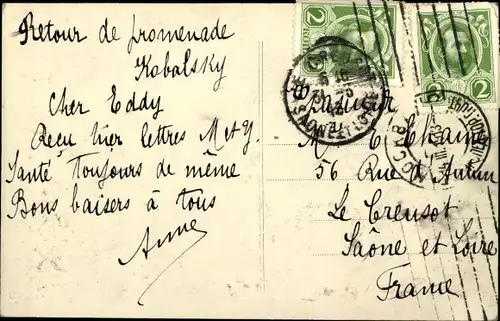 Retour de promenade
Kobalsky
Cher Eddy
Reçu hier lettres M et Y.
Santé Toujours de même
Bons baisers à tous
Anne
M. E. Chaine
56 Rue d'Autun
Le Creusot
Saône et Loire
France
2
2